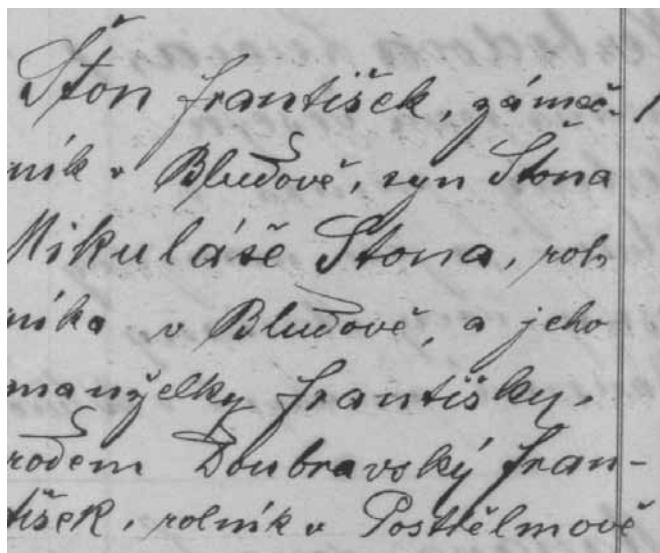 Šton František, zámeč-
ník v Bludově, syn Štona
Mikuláše Štona, rol-
níka v Bludově, a jeho
manželky Františky,
rodem Doubravský Fran-
tišek, rolník v Postřelmově